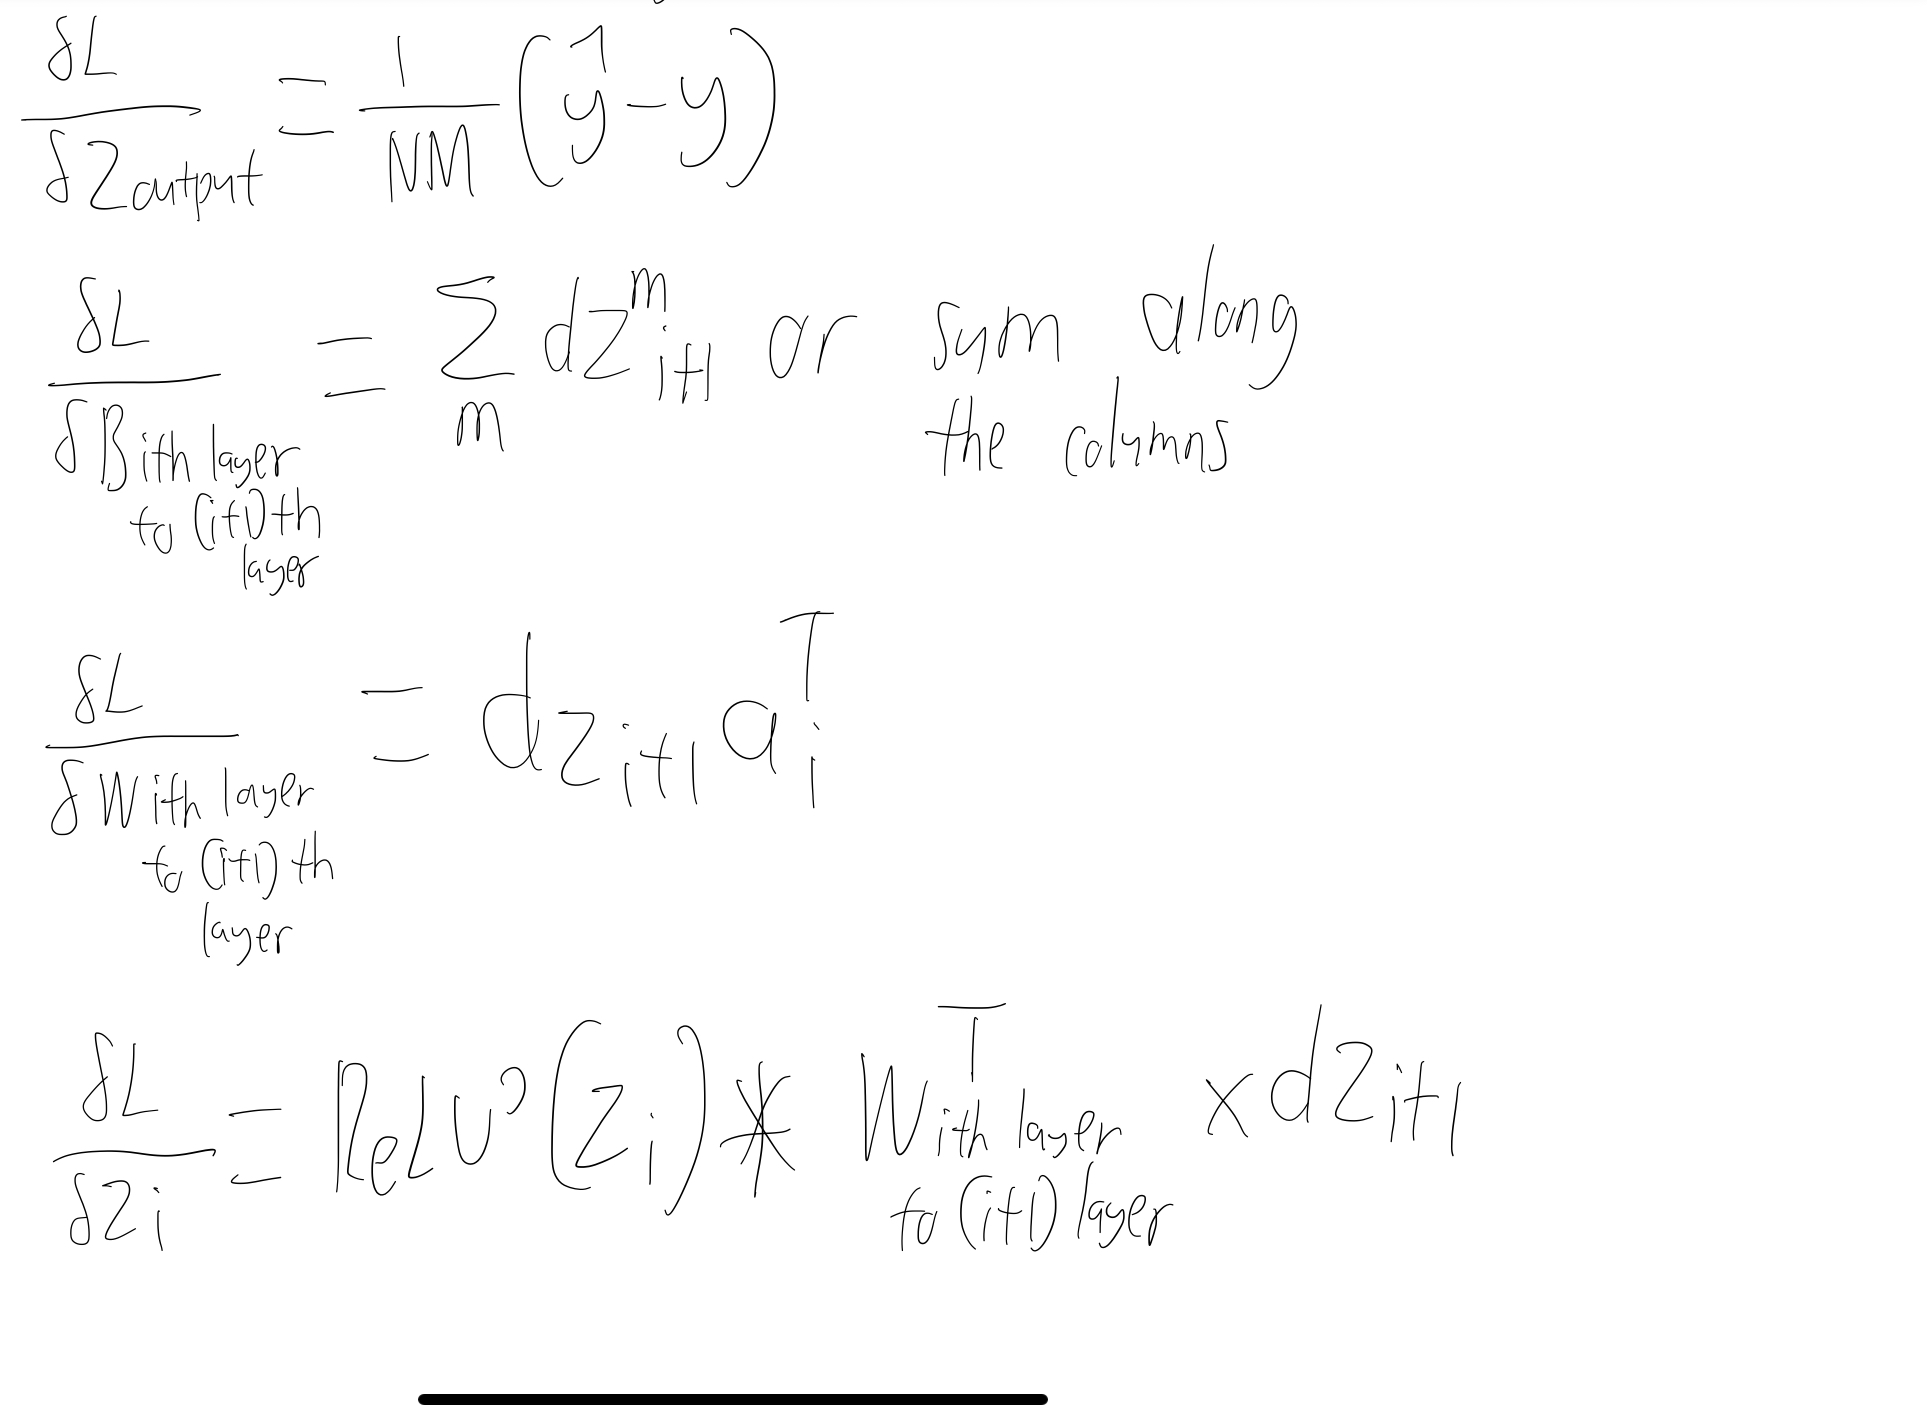 δL/δZoutput = 1/NM (ŷ - y)
δL/δB ith layer to (i+1)th layer = Σ_m dz^m_{i+1} or sum along
the columns
δL/δW ith layer to (i+1)th layer = dz_{i+1} a_i^T
δL/δZ_i = ReLU'(z_i) * W^T ith layer to (i+1) layer x dz_{i+1}